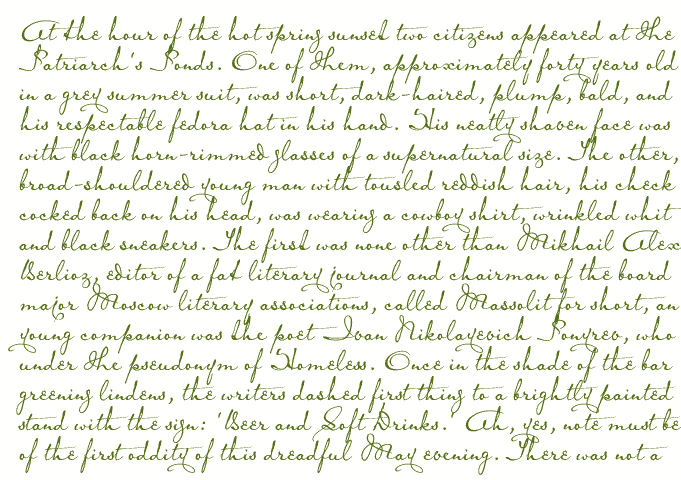 At the hour of the hot spring sunset two citizens appeared at the
Patriarch's Ponds. One of them, approximately forty years old
in a grey summer suit, was short, dark-haired, plump, bald, and
his respectable fedora hat in his hand. His neatly shaven face was
with black horn-rimmed glasses of a supernatural size. The other,
broad-shouldered young man with tousled reddish hair, his check
cocked back on his head, was wearing a cowboy shirt, wrinkled whit
and black sneakers. The first was none other than Mikhail Alex
Berlioz, editor of a fat literary journal and chairman of the board
major Moscow literary associations, called Massolit for short, an
young companion was the poet Ivan Nikolayevich Ponyrev, who
under the pseudonym of Homeless. Once in the shade of the bar
greening lindens, the writers dashed first thing to a brightly painted
stand with the sign: 'Beer and Soft Drinks.' Ah, yes, note must be
of the first oddity of this dreadful May evening. There was not a